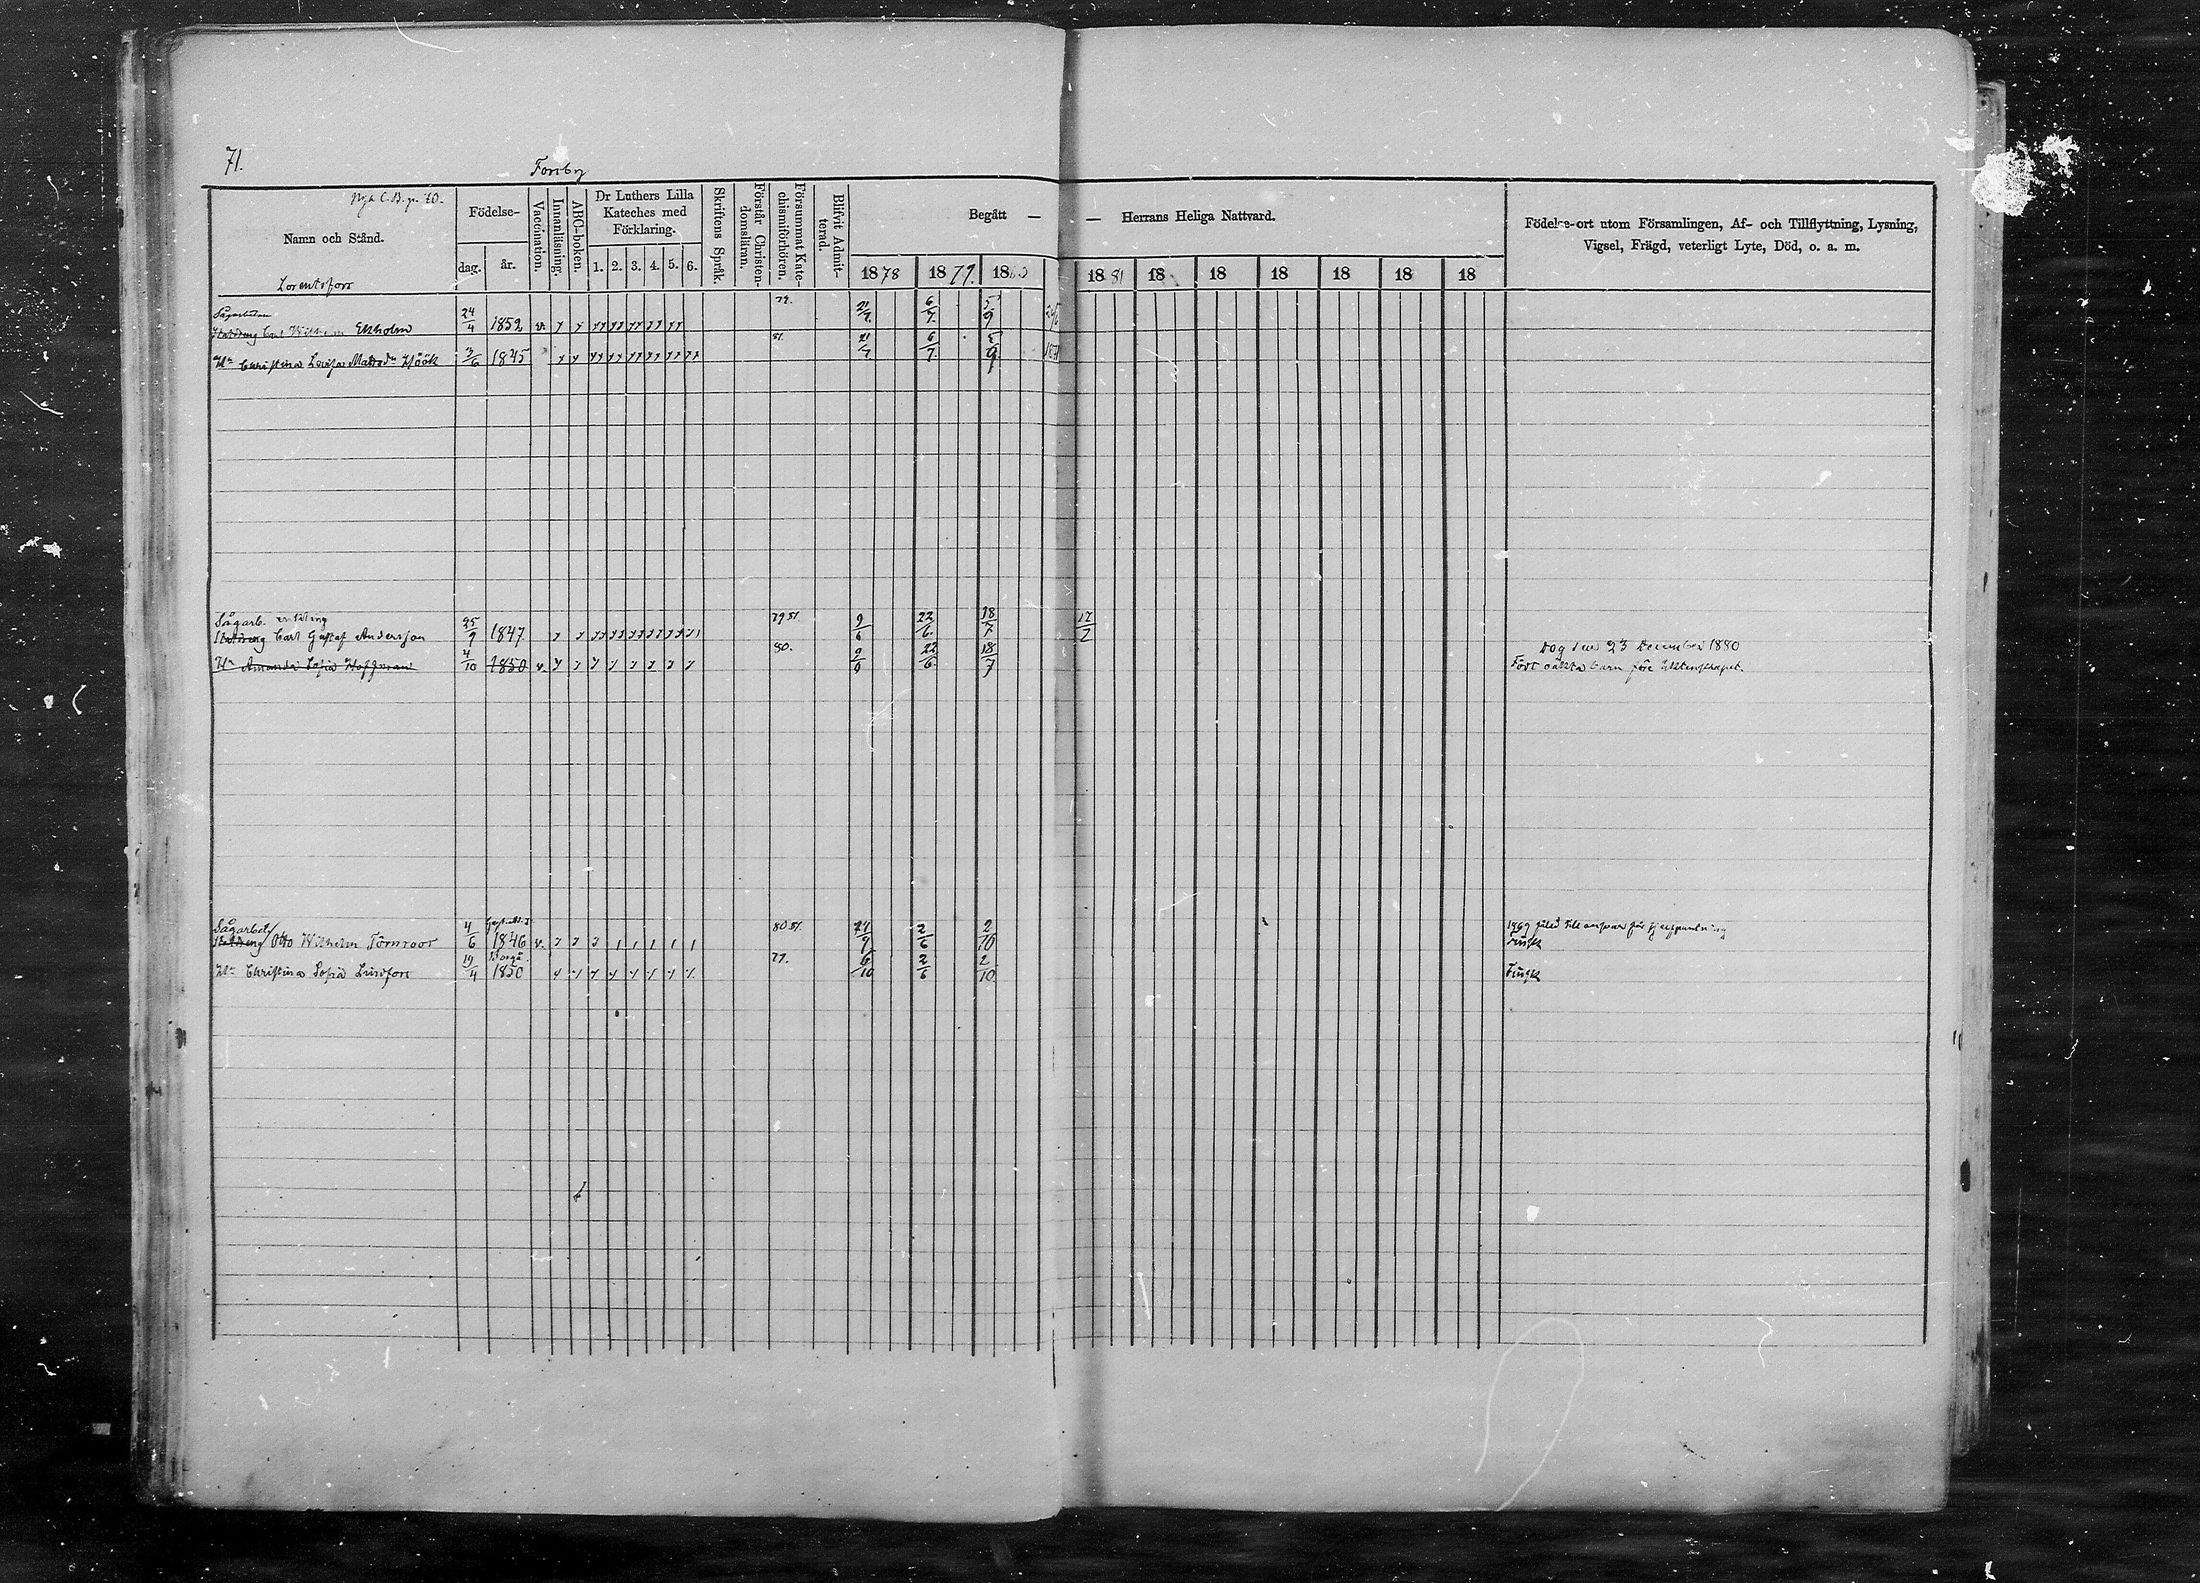 71.
Forsby
Nya C.B. p. 70.
Namn och Stånd.
Födelse-
dag.
år.
Vaccination.
Innanläsning.
ABC-boken.
Dr Luthers Lilla
Kateches med
Förklaring.
1. 2. 3. 4. 5. 6.
Skriftens Språk.
Förstår Christen-
domsläran.
Försummat Kate-
chismiförhören.
Blifvit Admit-
terad.
Begått — — Herrans Heliga Nattvard.
1878 1879. 1880 1881 18 18 18 18 18 18
Födelse-ort utom Församlingen, Af- och Tillflyttning, Lysning,
Vigsel, Frägd, veterligt Lyte, Död, o. a. m.
Lorentsfors
24/4 1852 v. 79. 21/7. 6/7. 5/9
Carl Wilhelm Ekholm
Hu Christina Lovisa Mattsdr Höök 3/6 1845 81. 21/7 6/7. 5/9
Sågarb. enkling
Carl Gustaf Andersson 25/9 1847 79 81. 9/6 22/6. 18/7 17/7
Hu Amanda Sofia Hoffman 4/10 1850 v. 80. 22/6. 18/7
Dog den 23 December 1880
Födt oäkta barn före äktenskapet.
Sågarbet/
Otto Wilhelm Törnroos 4/6 1846 v. 80 81. 2/6 2/10
Finsk
Borgå
Hu Christina Sofia Lindfors 19/4 1850 79. 6/10 2/6 2/10.
Finsk